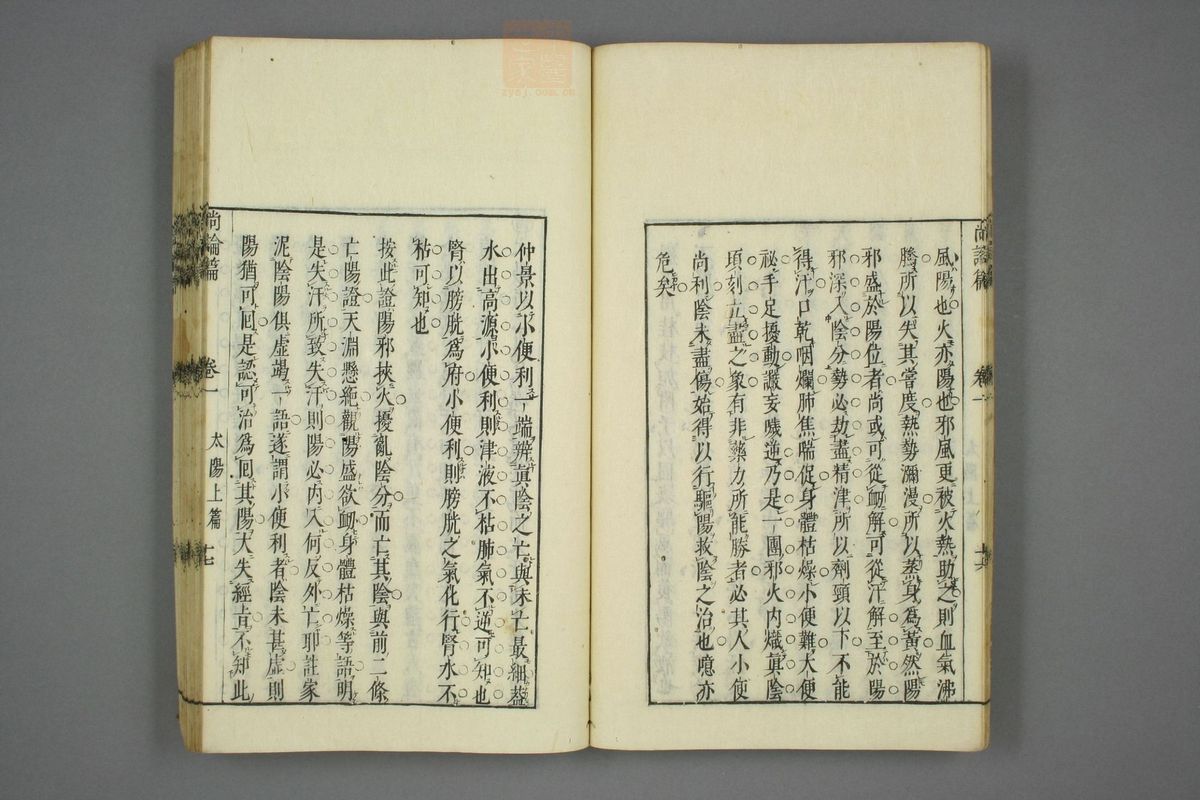 風陽也火亦陽也邪風更被火熱助之則血氣沸
騰所以失其嘗度熱勢瀰漫所以蒸身為黃然陽
邪盛於陽位者尚或可從衂解可從汗解至於陽
邪深入陰分勢必劫盡精津所以劑頸以下不能
得汗口乾咽爛肺焦喘促身體枯燥小便難大便
祕手足擾動譫妄噦逆乃是一團邪火內熾真陰
頃刻立盡之象有非藥力所能勝者必其人小便
尚利陰未盡傷始得以行驅陽救陰之治也噫亦
危矣
尚論篇
卷一
仲景以小便利一端辨真陰之亡與未亡最細蓋
水出高源小便利則津液不枯肺氣不逆可知也
腎以膀胱為府小便利則膀胱之氣化行腎水不
枯可知也
按此證陽邪挾火擾亂陰分而亡其陰與前二條
亡陽證天淵懸絶觀陽盛欲衂身體枯燥等語明
是失汗所致失汗則陽必內入何反外亡耶註家
泥陰陽俱虛竭一語遂謂小便利者陰未甚虛則
陽猶可囘是認可治為囘其陽大失經旨不知此
尚論篇
卷一
太陽上篇
十七
zysj.com.cn